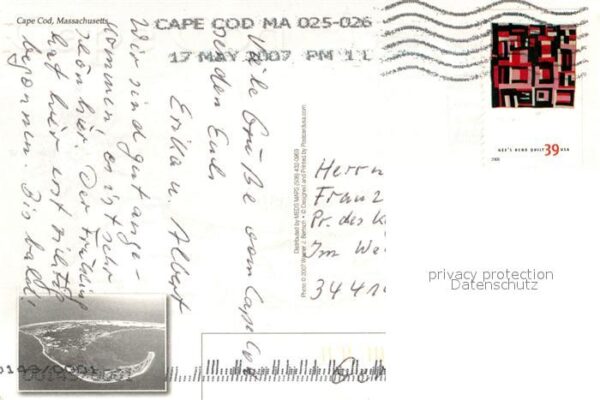 Cape Cod, Massachusetts
CAPE COD MA 025-026
17 MAY 2007 PM 1 L
GEE'S BEND QUILT 39 USA
2006
Liebe Grüße vom Cape Cod
senden Euch
Erika u. Albert
Wir sind gut ange-
kommen es ist sehr
schön hier. Der Frühling
hat hier erst richtig
begonnen Bis bald!
Distributed by MEDS MAPS (508) 432-0969
Photo © 2007 • © Designed and Printed by Postcardusa.com
Herrn
Franz
Pr. des K
Im We
3441
privacy protection
Datenschutz
00143/0001